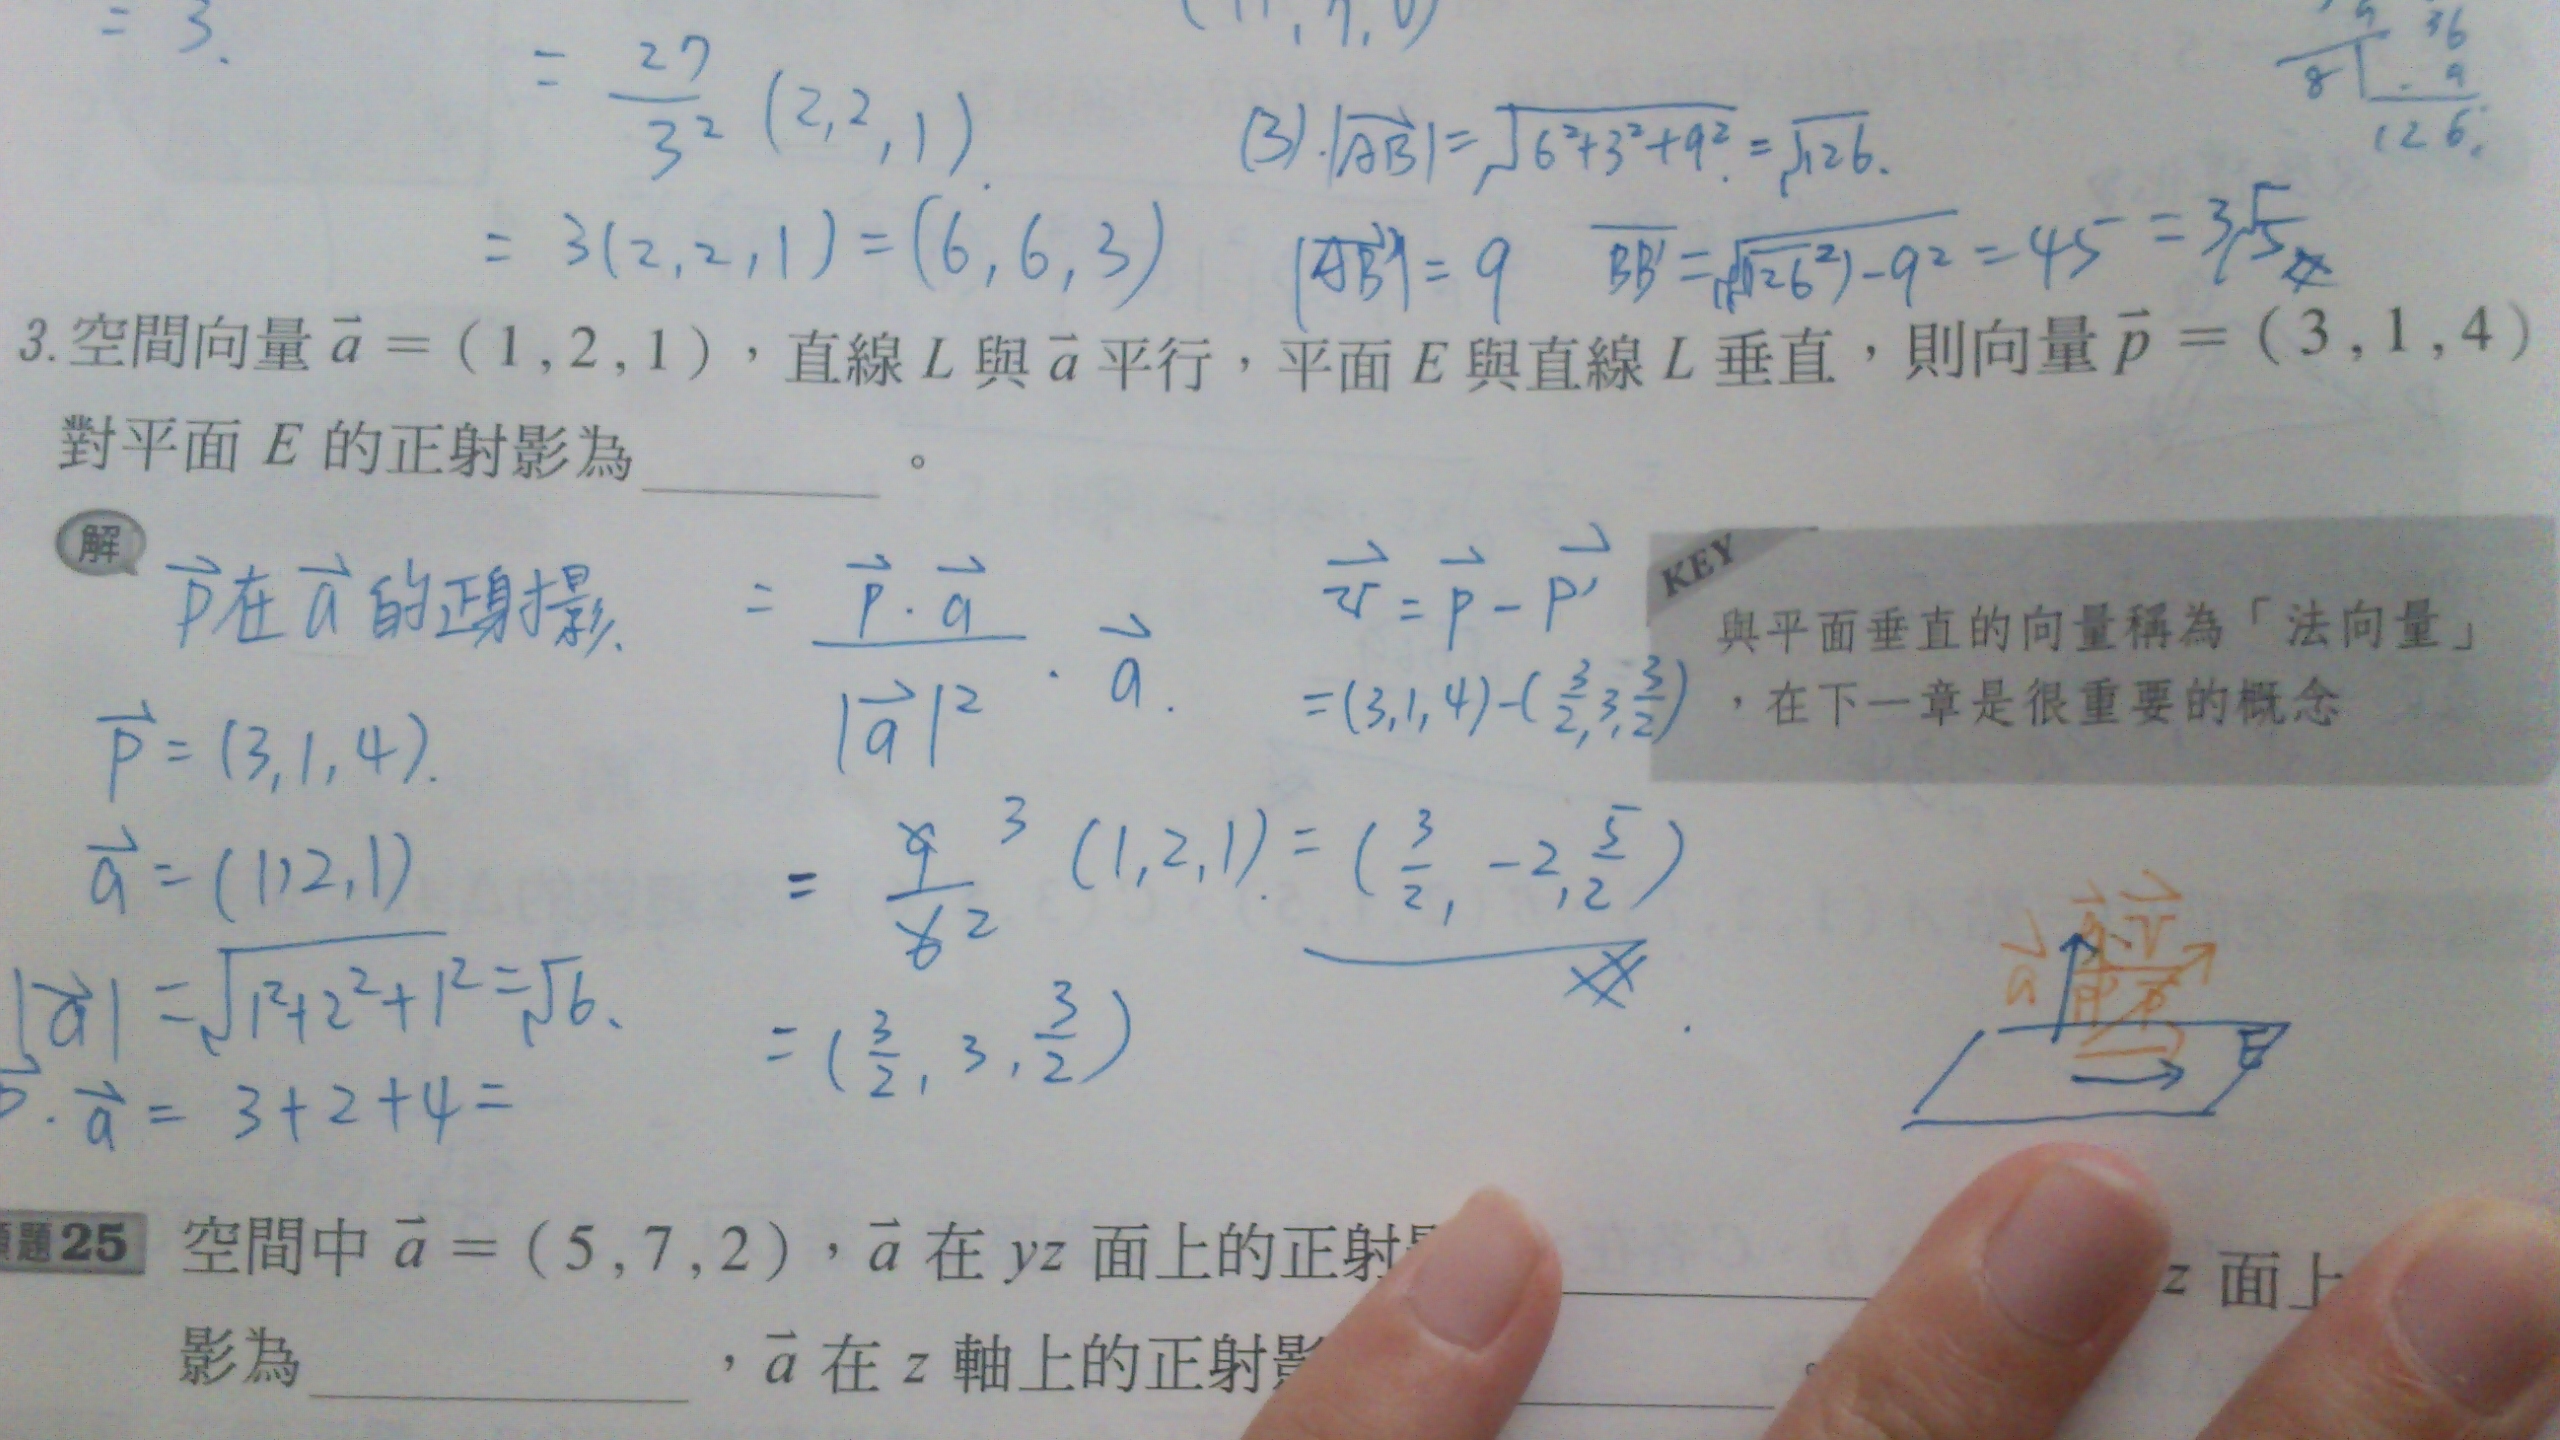 = 3.
= 27/3² (2,2,1).
= 3(2,2,1) = (6,6,3)
36
9
126.
(3). |AB| = √6²+3²+9² = √126.
|AB'| = 9 BB' = √(√126²)-9² = 45 = 3√5
3. 空間向量 a = (1,2,1),直線 L 與 a 平行,平面 E 與直線 L 垂直,則向量 p = (3,1,4)
對平面 E 的正射影為________。
解
p在a的正射影.
p = (3,1,4).
a = (1,2,1)
|a| = √1²+2²+1² = √6.
p·a = 3+2+4 =
= p·a/|a|² · a.
= 9/6 3 2 (1,2,1).
= (3/2, 3, 3/2)
v = p - p'
= (3,1,4)-(3/2,3,3/2)
= (3/2, -2, 5/2)
KEY
與平面垂直的向量稱為「法向量」
,在下一章是很重要的概念
a
p
E
題25 空間中 a = (5,7,2),a 在 yz 面上的正射 z 面上
影為________,a 在 z 軸上的正射影________。